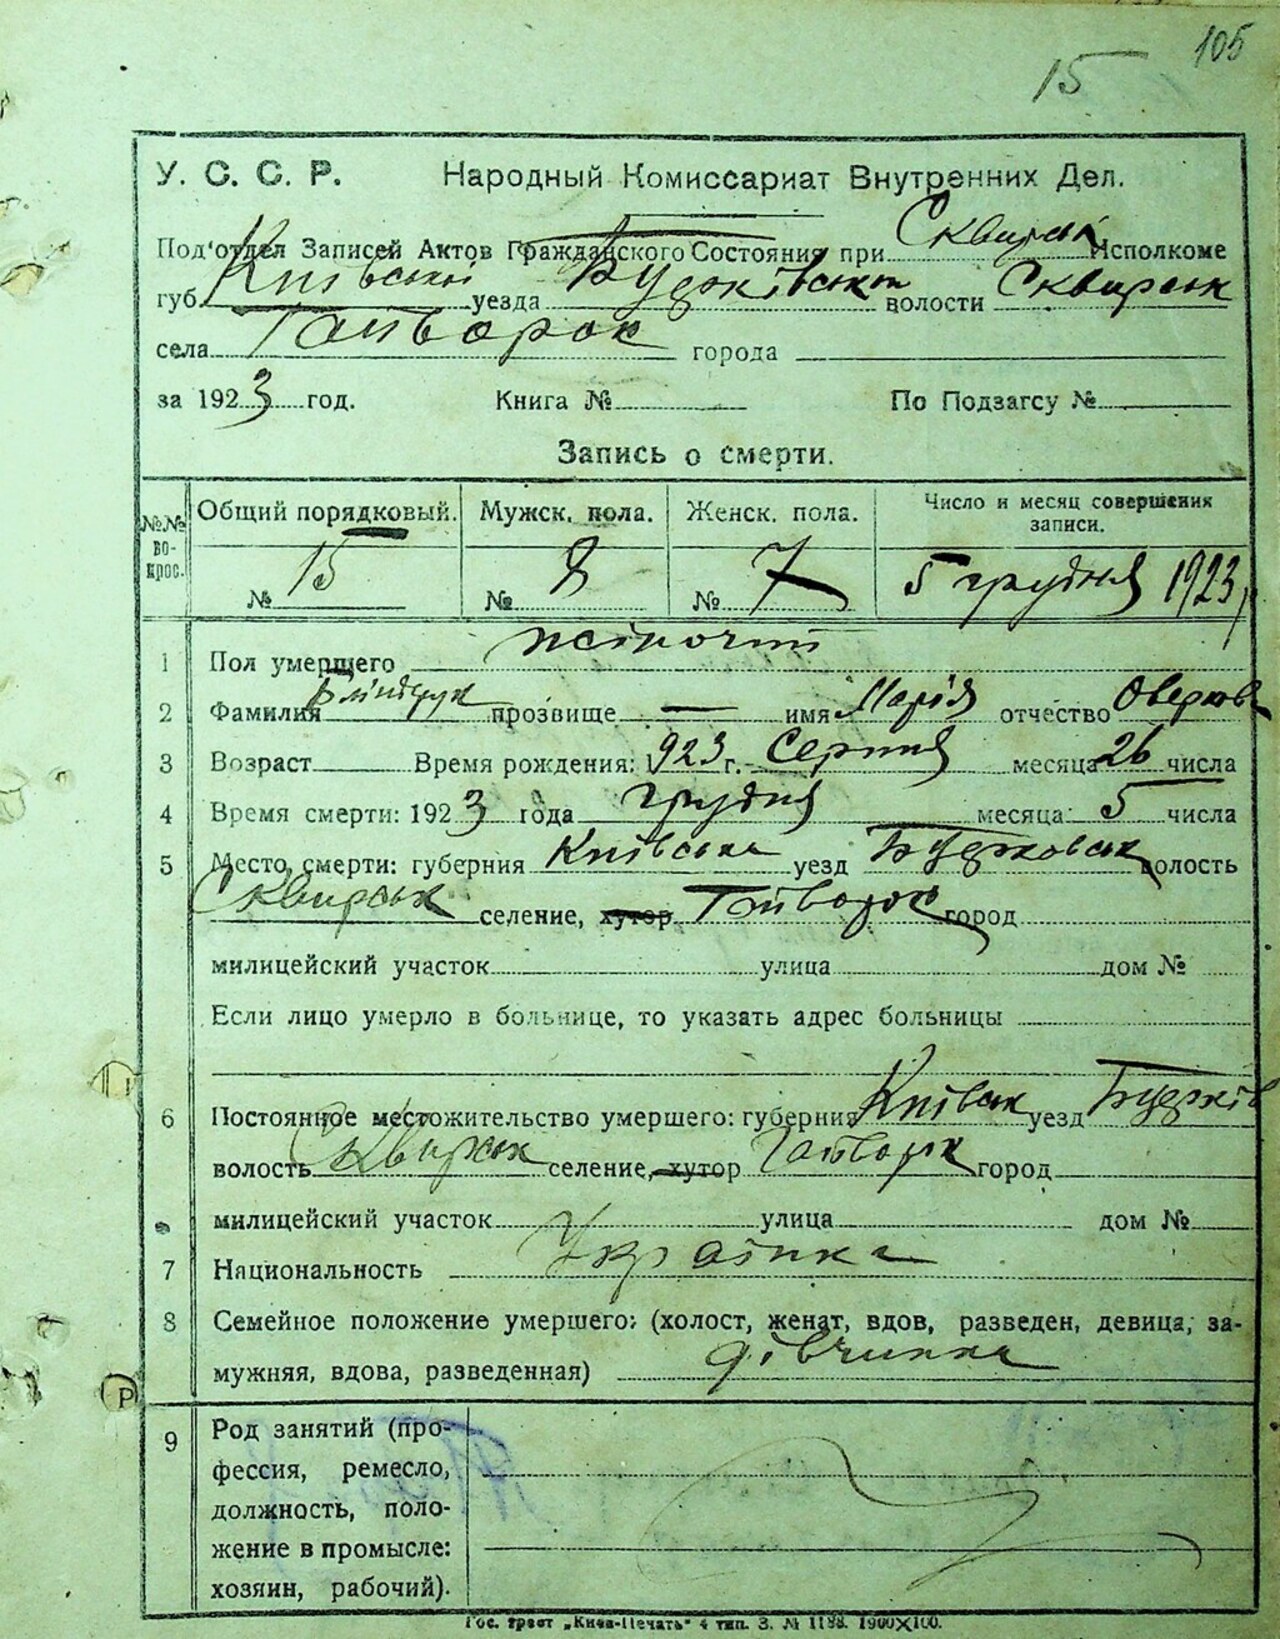 105
15
У. С. С. Р. Народный Комиссариат Внутренних Дел.
Под'отдел Записей Актов Гражданского Состояния при Сквирськ Исполкоме
губ. Київської уезда волости Сквирськ
села Гайворок города
за 1923 год. Книга № По Подзагсу №
Запись о смерти.
№№ вопрос. Общий порядковый. Мужск. пола. Женск. пола. Число и месяц совершения записи.
№ 15 № 8 № 7 5 грудня 1923
1 Пол умершего жіночий
2 Фамилия прозвище — имя Марія отчество Оверков
3 Возраст Время рождения: 1923 г. Серпня месяца 26 числа
4 Время смерти: 1923 года грудня месяца 5 числа
5 Место смерти: губерния Київська уезд волость
Сквирськ селение, хутор Гайворок город
милицейский участок улица дом №
Если лицо умерло в больнице, то указать адрес больницы
6 Постоянное местожительство умершего: губерния Київськ уезд
волость Сквирськ селение, хутор Гайворк город
милицейский участок улица дом №
7 Национальность Українка
8 Семейное положение умершего: (холост, женат, вдов, разведен, девица, за-
мужняя, вдова, разведенная) дівчинка
9 Род занятий (про-
фессия, ремесло,
должность, поло-
жение в промысле:
хозяин, рабочий).
Гос. трест „Киев-Печать" 4 тип. З. № 1188. 1900×100.